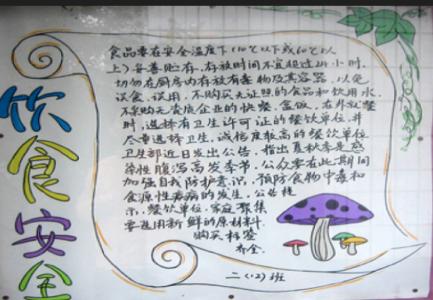 饮食安全
食品要在安全温度下(10℃以下或60℃以
上)妥善贮存,存放时间不宜超过24小时,
切勿在厨房内存放有毒物及其容器,以免
误食、误用。不购买无证照的食品和饮用水,
不采购无资质企业的快餐、盒饭。在外就餐
时,选择有卫生许可证的餐饮单位,并
尽量选择卫生、诚信度较高的餐饮单位
卫生部近日发出公告,指出夏秋季是感
染性腹泻高发季节。公众要在此期间
加强自我防护意识,预防食物中毒和
食源性疾病的发生。公告提
示,餐饮单位、家庭聚集
要选用新鲜的原材料
购买标签
齐全.
二(12)班